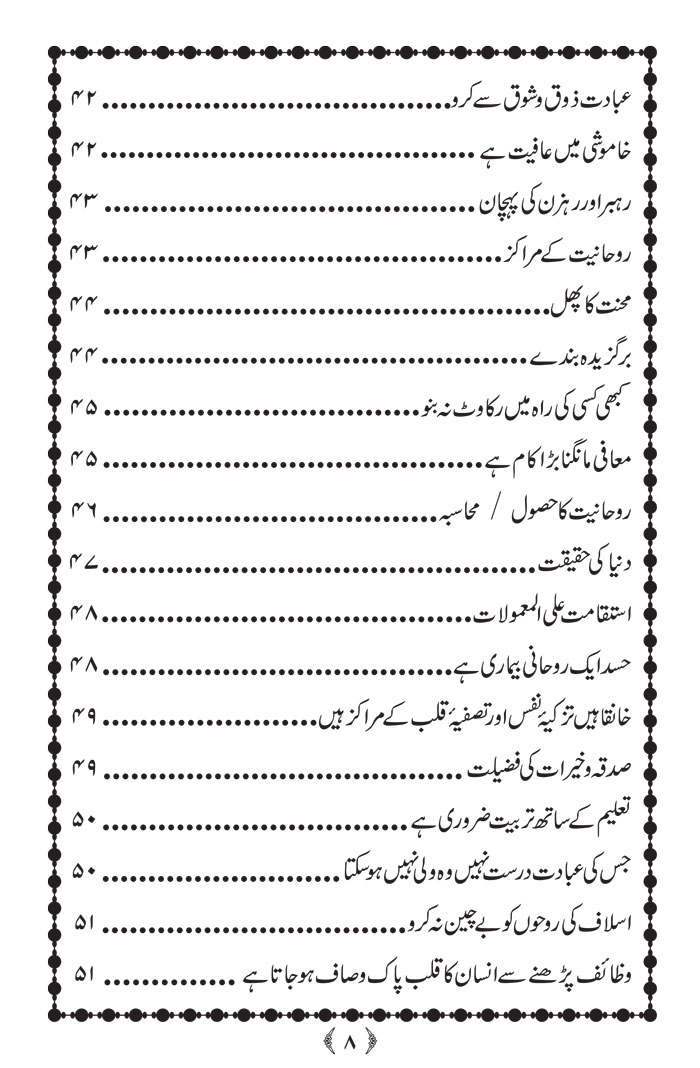 عبادت ذوق وشوق سے کرو.......................................۴۲
خاموشی میں عافیت ہے .......................................۴۲
رہبر اور رہزن کی پہچان .......................................۴۳
روحانیت کے مراکز .......................................۴۳
محنت کا پھل.......................................۴۴
برگزیدہ بندے .......................................۴۴
کبھی کسی کی راہ میں رکاوٹ نہ بنو .......................................۴۵
معافی مانگنا بڑا کام ہے .......................................۴۵
روحانیت کا حصول / محاسبہ.......................................۴۶
دنیا کی حقیقت.......................................۴۷
استقامت علی المعمولات.......................................۴۸
حسد ایک روحانی بیماری ہے .......................................۴۸
خانقاہیں تزکیۂ نفس اور تصفیۂ قلب کے مراکز ہیں.........................۴۹
صدقہ وخیرات کی فضیلت .......................................۴۹
تعلیم کے ساتھ تربیت ضروری ہے .................................۵۰
جس کی عبادت درست نہیں وہ ولی نہیں ہوسکتا...........................۵۰
اسلاف کی روحوں کو بے چین نہ کرو..................................۵۱
وظائف پڑھنے سے انسان کا قلب پاک وصاف ہوجاتا ہے ..............۵۱
﴿۸﴾